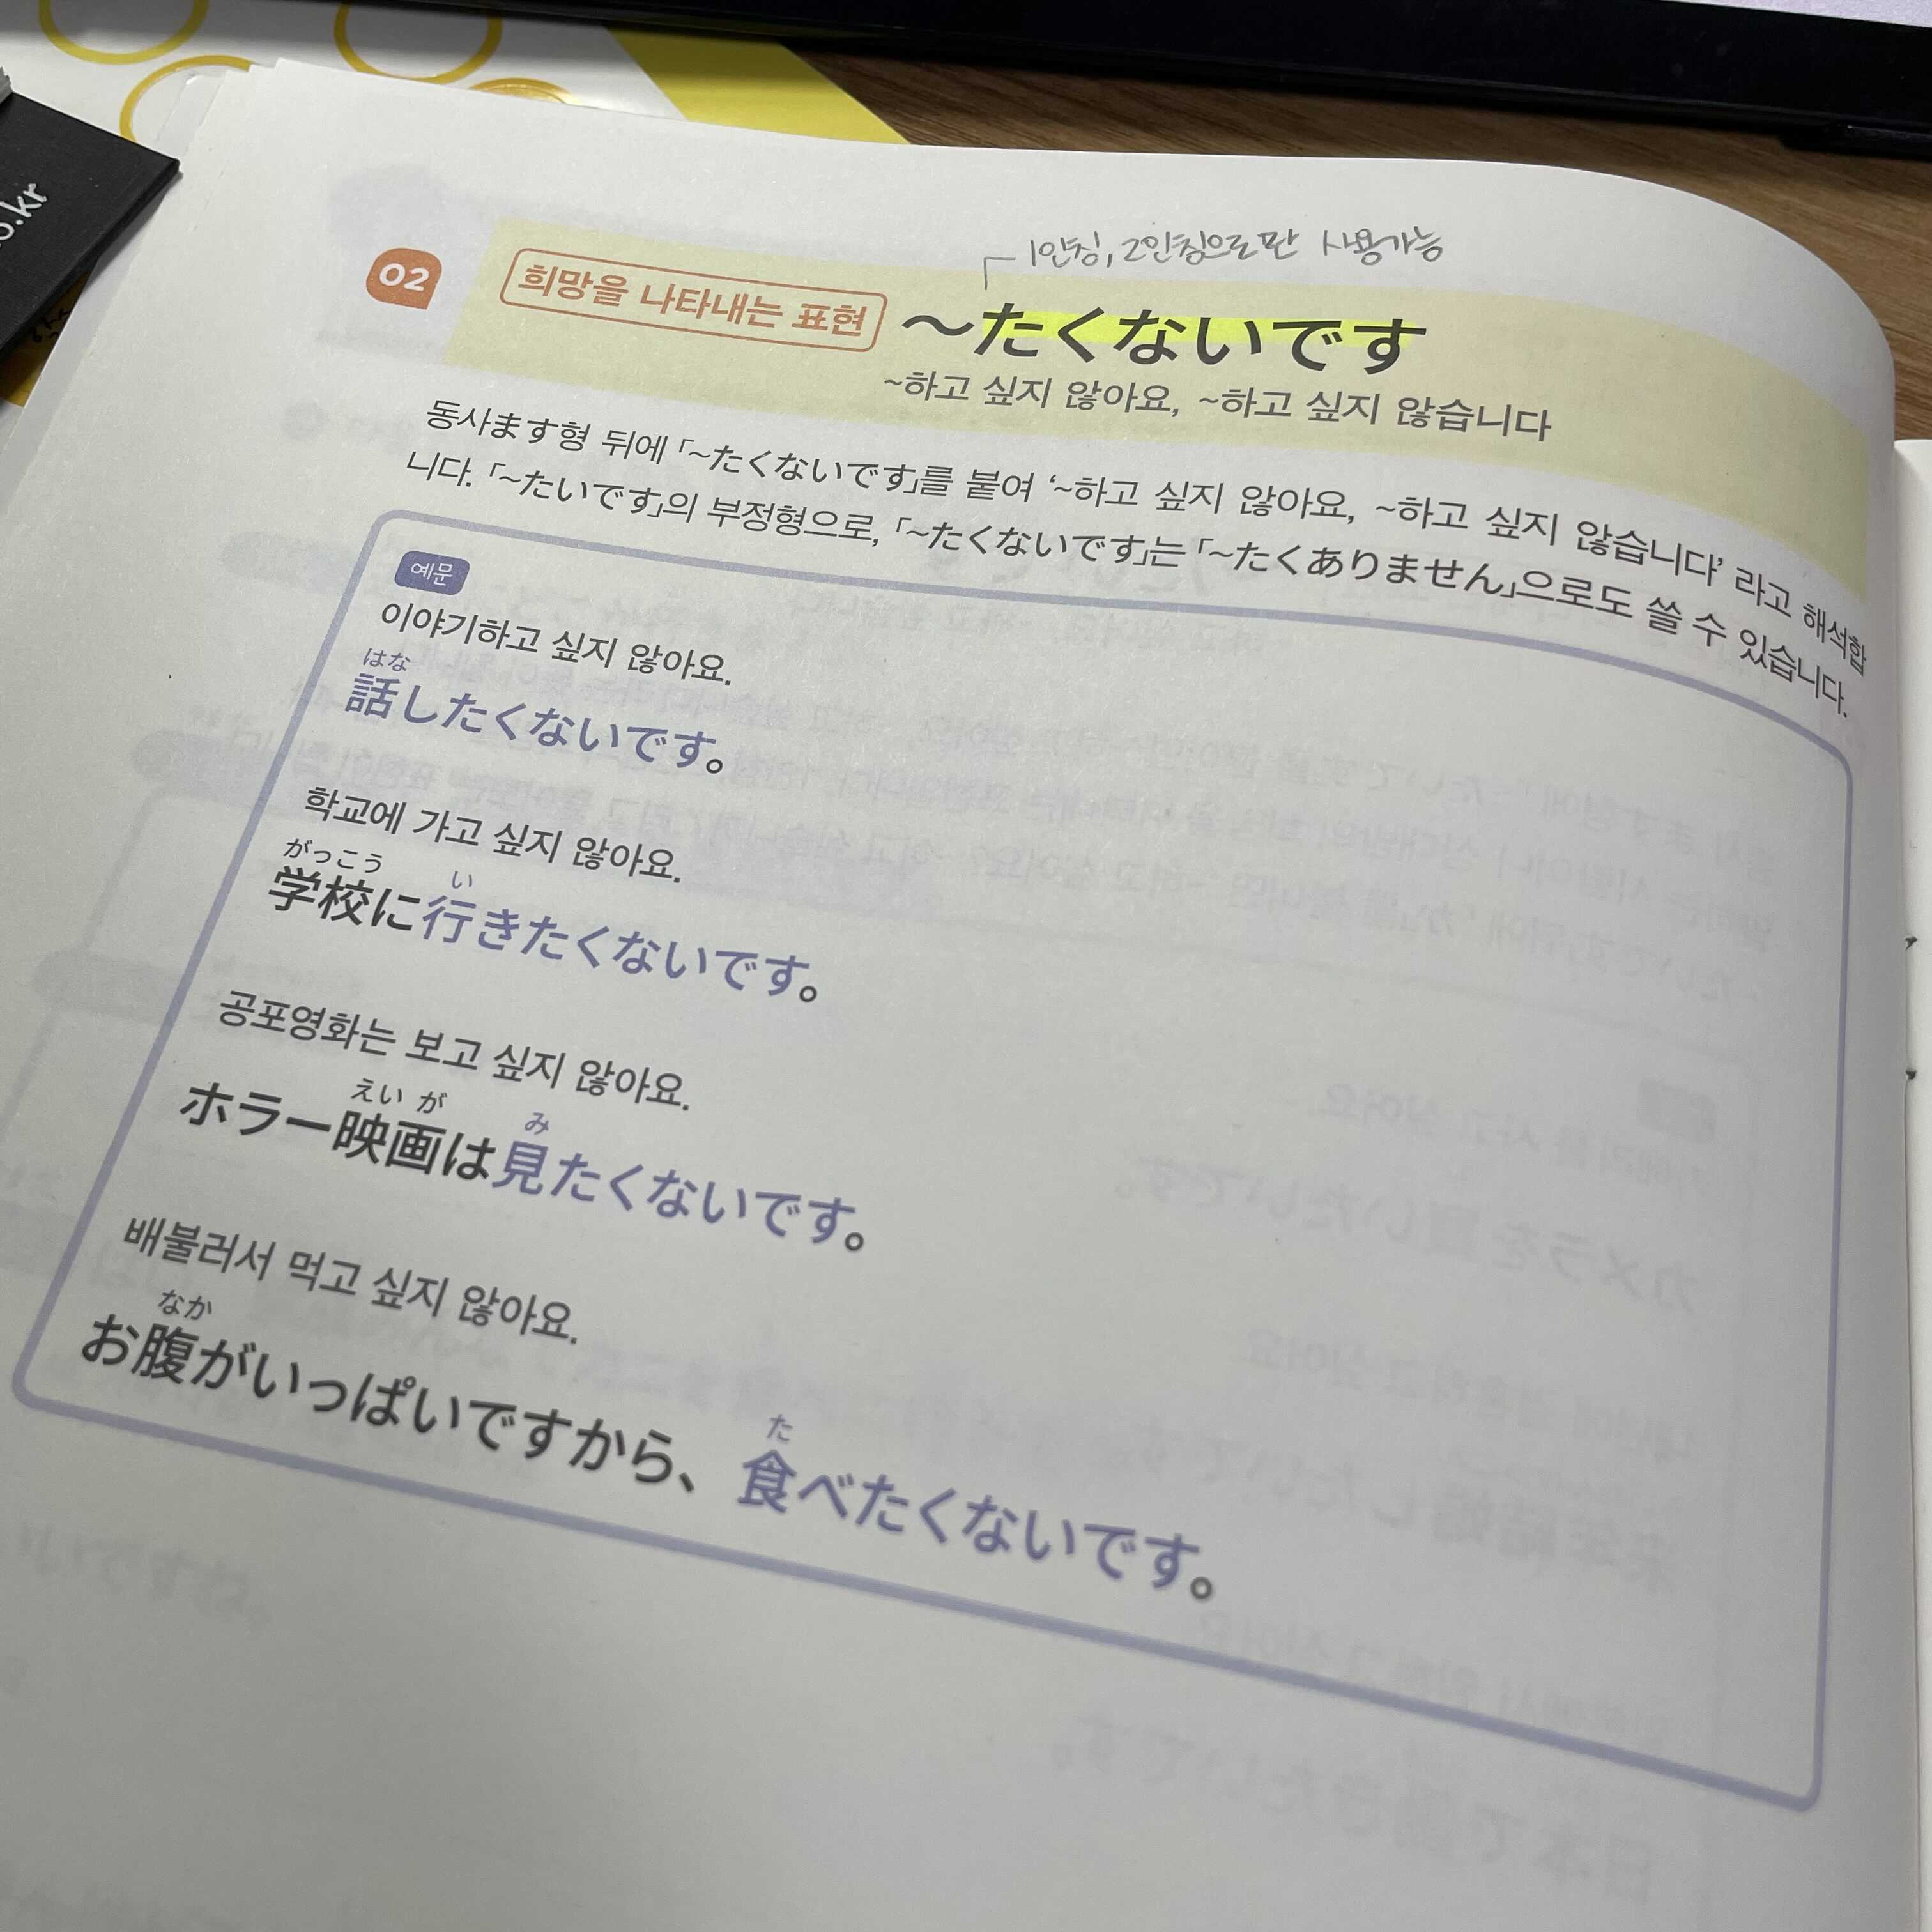 o.kr
1인칭, 2인칭으로만 사용가능
02 희망을 나타내는 표현 ～たくないです
~하고 싶지 않아요, ~하고 싶지 않습니다
동사ます형 뒤에 「~たくないです」를 붙여 ‘~하고 싶지 않아요, ~하고 싶지 않습니다’ 라고 해석합
니다. 「~たいです」의 부정형으로, 「~たくないです」는 「~たくありません」으로도 쓸 수 있습니다.
예문
이야기하고 싶지 않아요.
はな
話したくないです。
학교에 가고 싶지 않아요.
がっこう い
学校に行きたくないです。
공포영화는 보고 싶지 않아요.
えい が み
ホラー映画は見たくないです。
배불러서 먹고 싶지 않아요.
なか た
お腹がいっぱいですから、食べたくないです。